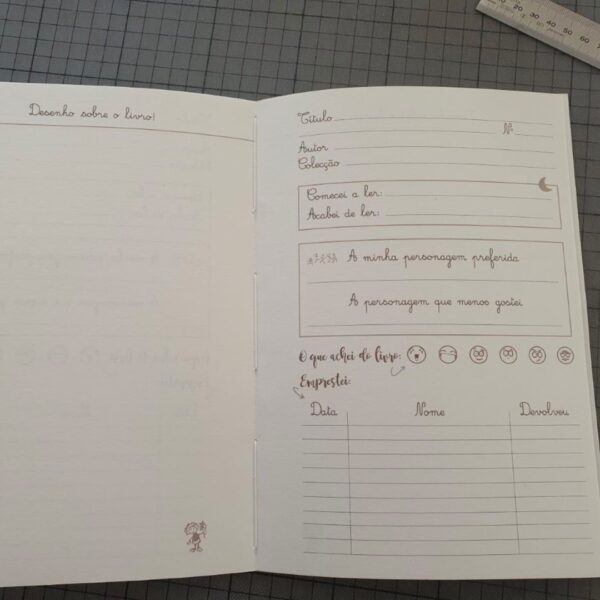 Desenho sobre o livro!
Título
Nº
Autor
Colecção
Comecei a ler:
Acabei de ler:
A minha personagem preferida
A personagem que menos gostei
O que achei do livro:
Emprestei:
Data Nome Devolveu
20 30 40 50 60